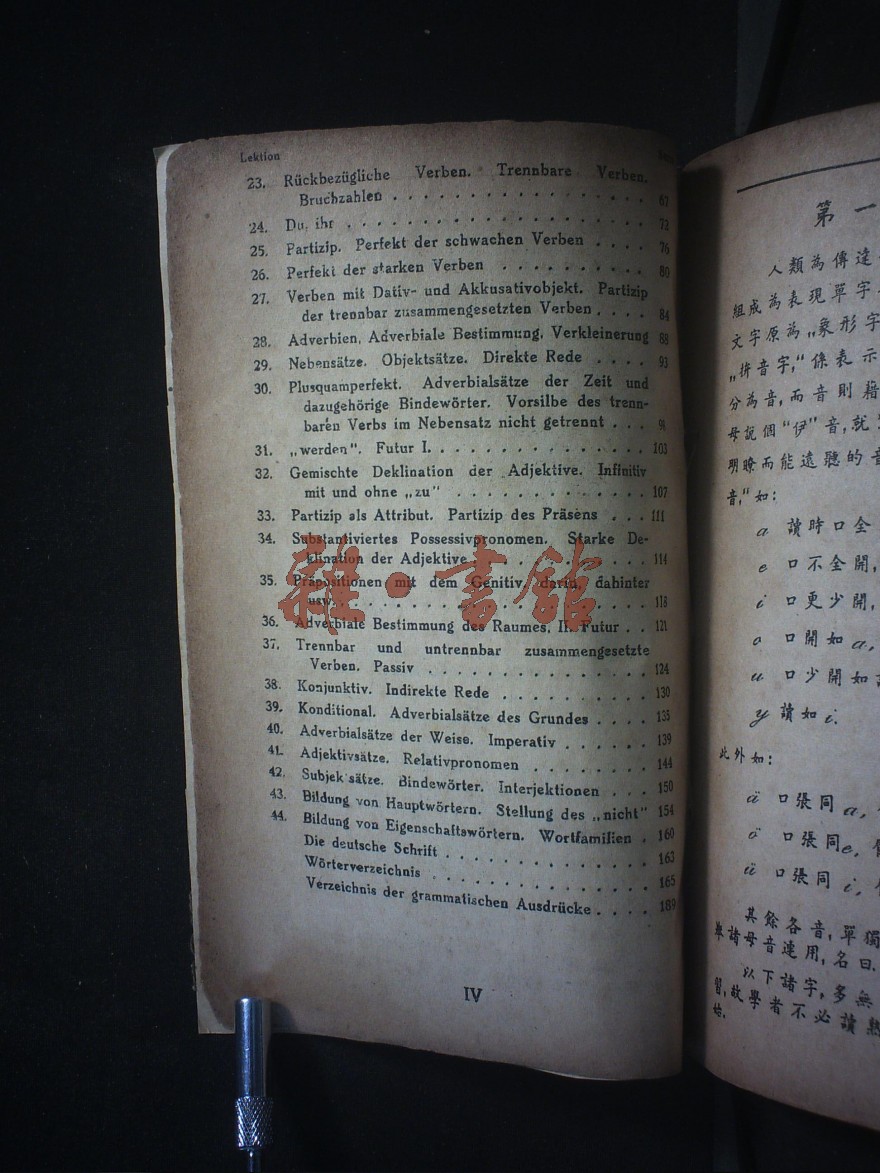 Lektion
23. Rückbezügliche Verben. Trennbare Verben.
Bruchzahlen . . . . . . . . . . . . . . . . 67
24. Du, ihr . . . . . . . . . . . . . . . . . . 72
25. Partizip. Perfekt der schwachen Verben . . . . 76
26. Perfekt der starken Verben . . . . . . . . . . 80
27. Verben mit Dativ- und Akkusativobjekt. Partizip
der trennbar zusammengesetzten Verben . . . . 84
28. Adverbien, Adverbiale Bestimmung, Verkleinerung 88
29. Nebensätze. Objektsätze. Direkte Rede . . . . 93
30. Plusquamperfekt. Adverbialsätze der Zeit und
dazugehörige Bindewörter. Vorsilbe des trenn-
baren Verbs im Nebensatz nicht getrennt . . .
31. „werden". Futur I. . . . . . . . . . . . . . . 103
32. Gemischte Deklination der Adjektive. Infinitiv
mit und ohne „zu" . . . . . . . . . . . . . 107
33. Partizip als Attribut. Partizip des Präsens . . . 111
34. Substantiviertes Possessivpronomen. Starke De-
klination der Adjektive . . . . . . . . . . . 114
35. Präpositionen mit dem Genitiv, darin, dahinter
usw. . . . . . . . . . . . . . . . . . . . 118
36. Adverbiale Bestimmung des Raumes, II. Futur . . 121
37. Trennbar und untrennbar zusammengesetzte
Verben. Passiv . . . . . . . . . . . . . . 124
38. Konjunktiv. Indirekte Rede . . . . . . . . . 130
39. Konditional. Adverbialsätze des Grundes . . . . 135
40. Adverbialsätze der Weise. Imperativ . . . . . . 139
41. Adjektivsätze. Relativpronomen . . . . . . . . 144
42. Subjek sätze. Bindewörter. Interjektionen . . . 150
43. Bildung von Hauptwörtern. Stellung des „nicht" 154
44. Bildung von Eigenschaftswörtern. Wortfamilien . 160
Die deutsche Schrift . . . . . . . . . . . . . 163
Wörterverzeichnis . . . . . . . . . . . . . . 165
Verzeichnis der grammatischen Ausdrücke . . . . 189
IV
雜·書館
第一
人類為傳達
組成為表現單字
文字原為„象形字
„拚音字,"係表示
分為音,而音則藉
母説個"伊"音,就
明瞭而能遠聽的音
音,"如:
a 讀時口全
e 口不全開,
i 口更少開,
o 口開如a,
u 口少開如
y 讀如i.
此外如:
ä 口張同a,
ö 口張同e,
ü 口張同i,
其餘各音,單獨
諸母音連用,名曰
以下諸字,多無
習,故學者不必讀熟
始.